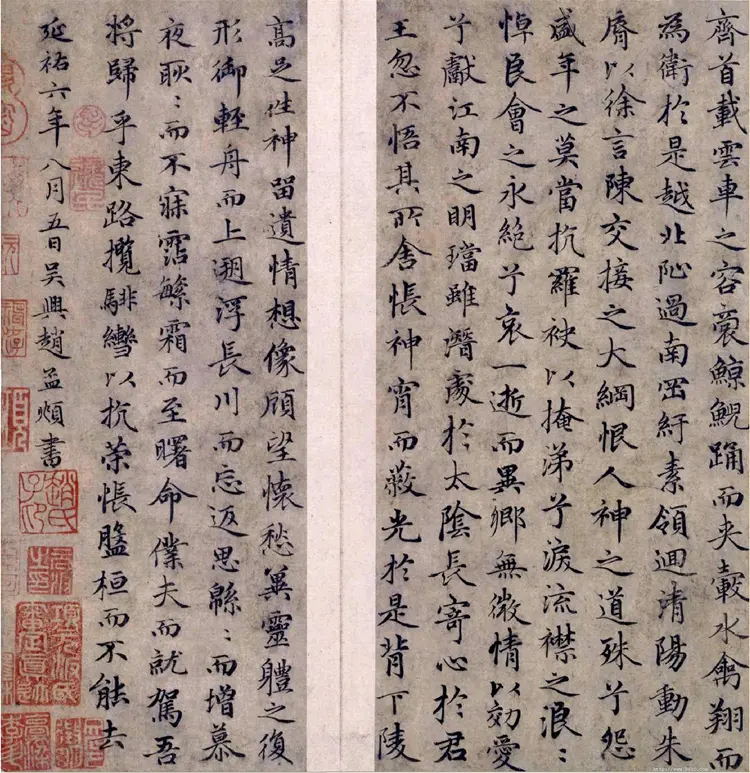 齊首載雲車之容裔鯨鯢踊而夾轂水禽翔而
為衛於是越北沚過南岡紆素領迴清陽動朱
脣以徐言陳交接之大綱恨人神之道殊兮怨
盛年之莫當抗羅袂以掩涕兮淚流襟之浪:
悼良會之永絕兮哀一逝而異鄉無微情以効愛
兮獻江南之明璫雖潛處於太陰長寄心於君
王忽不悟其所舍悵神宵而蔽光於是背下陵
高足往神留遺情想像顧望懷愁冀靈體之復
形御輕舟而上遡浮長川而忘返思緜:而增慕
夜耿:而不寐霑繁霜而至曙命僕夫而就駕吾
將歸乎東路攬騑轡以抗策悵盤桓而不能去
延祐六年八月五日吳興趙孟頫書